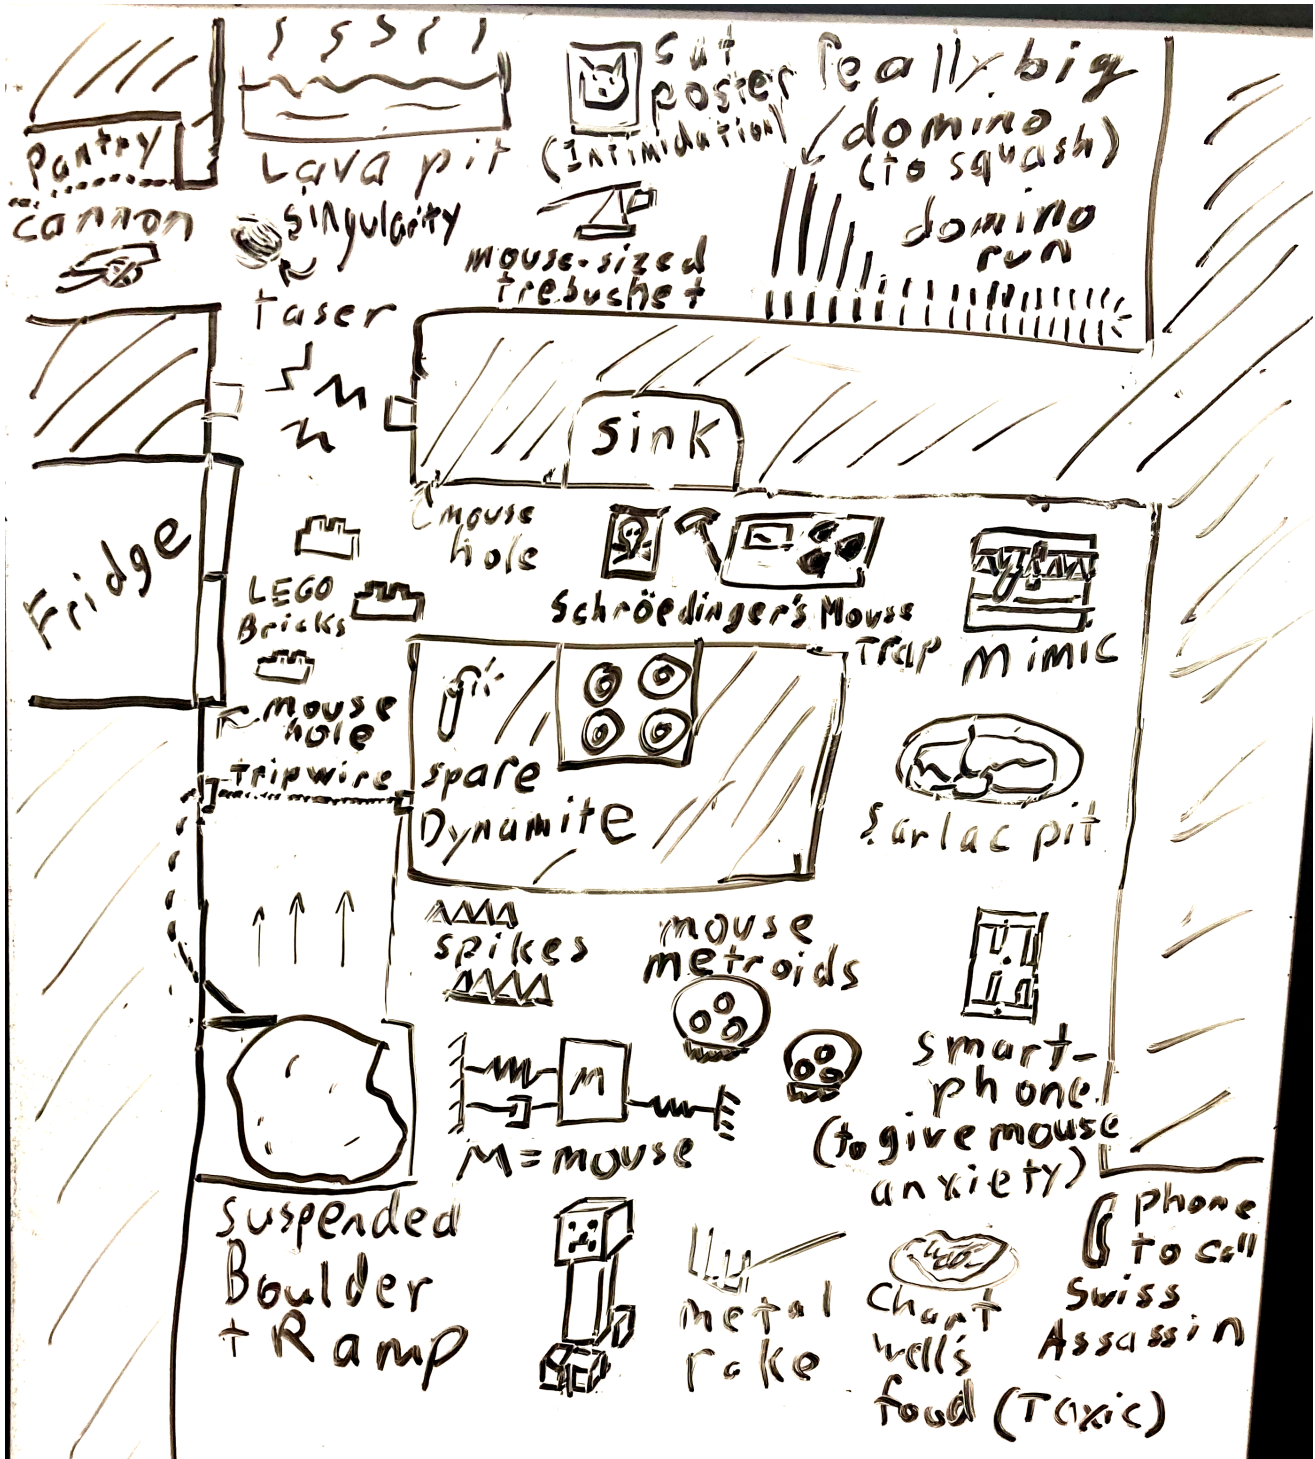 cat
poster
(Intimidation)
really big
domino
(to squash)
Pantry
Lava pit
cannon
singularity
mouse-sized
trebuchet
domino
run
taser
sink
Fridge
mouse
hole
LEGO
Bricks
Schröedinger's Mouse
Trap
mimic
mouse
hole
tripwire
spare
Dynamite
Sarlac pit
spikes
mouse
metroids
M
smart-
phone
(to give mouse
anxiety)
M = mouse
suspended
Boulder
+ Ramp
metal
rake
Chart
well's
food (Toxic)
phone
to call
Swiss
Assassin